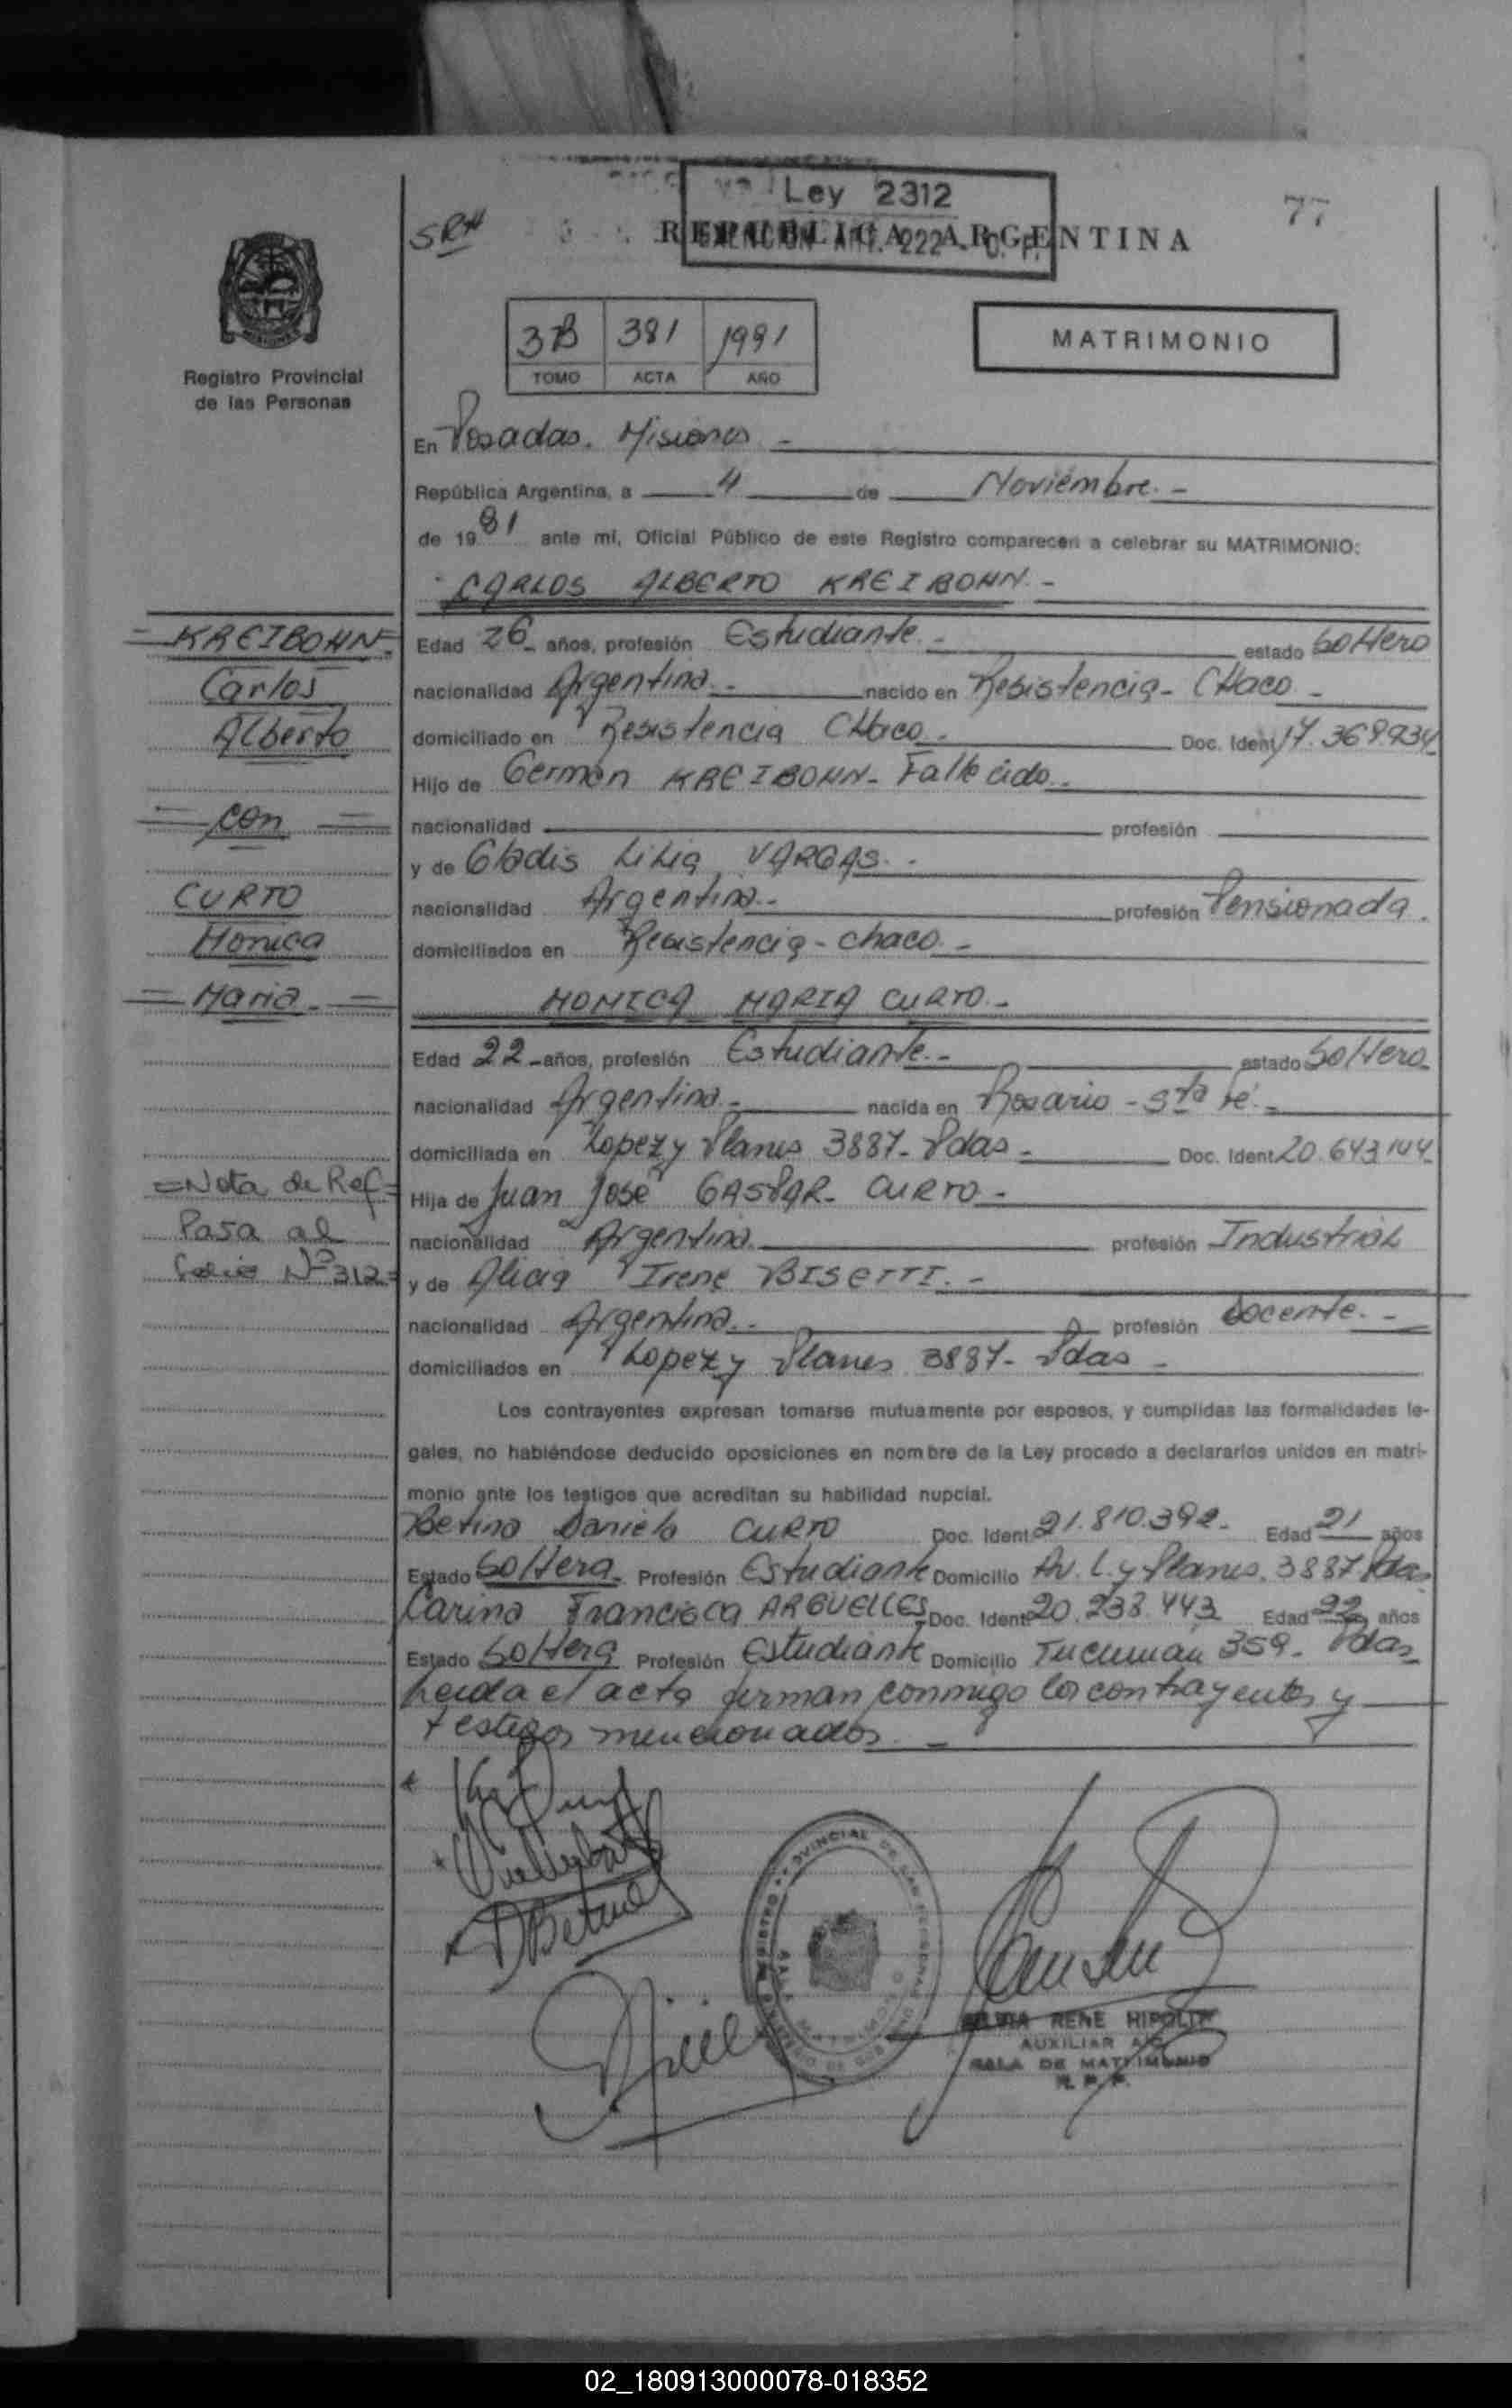 Ley 2312
77
SRH
REPUBLICA ARGENTINA
EXENCION ART. 222 - C. F.
3B 381 1991
TOMO ACTA AÑO
MATRIMONIO
Registro Provincial
de las Personas
En Posadas. Misiones -
República Argentina, a 4 de Noviembre. -
de 1991 ante mí, Oficial Público de este Registro comparecen a celebrar su MATRIMONIO:
CARLOS ALBERTO KREIBOHN. -
= KREIBOHN =
Carlos
Alberto
= con =
CURTO
Monica
= Maria =
Edad 26 años, profesión Estudiante. - estado Soltero
nacionalidad Argentina. - nacido en Resistencia - CHaco -
domiciliado en Resistencia CHaco. - Doc. Ident 17.369.934
Hijo de Germán KREIBOHN - Fallecido. -
nacionalidad profesión
y de Gladis Lilia VARGAS. -
nacionalidad Argentina. - profesión Pensionada.
domiciliados en Resistencia - chaco. -
MONICA MARIA CURTO. -
Edad 22 - años, profesión Estudiante. - estado Soltera
nacionalidad Argentina. - nacida en Rosario - Sta Fé. -
domiciliada en Lopez y Planes 3887 - Pdas - Doc. Ident. 20.643.144
= Nota de Ref =
Pasa al
Folio Nº 312 =
Hija de Juan José GASPAR - CURTO -
nacionalidad Argentina. profesión Industrial
y de Alicia Irene BISETTI. -
nacionalidad Argentina. - profesión Docente. -
domiciliados en Lopez y Planes 3887 - Pdas -
Los contrayentes expresan tomarse mutuamente por esposos, y cumplidas las formalidades le-
gales, no habiéndose deducido oposiciones en nombre de la Ley procedo a declararlos unidos en matri-
monio ante los testigos que acreditan su habilidad nupcial.
Betina Daniela CURTO Doc. Ident. 21.810.392 - Edad 21 años
Estado Soltera. Profesión Estudiante Domicilio Av. L. y Planes. 3887 Pdas
Carina Francisca ARGUELLES Doc. Ident. 20.238.443 Edad 22 años
Estado Soltera Profesión Estudiante Domicilio Tucumán 359 - Pdas
Leida el acta firman conmigo los contrayentes y
testigos mencionados. -
RENE HIPOLIT
AUXILIAR
SALA DE MATRIMONIO
R. P. P.
02_180913000078-018352